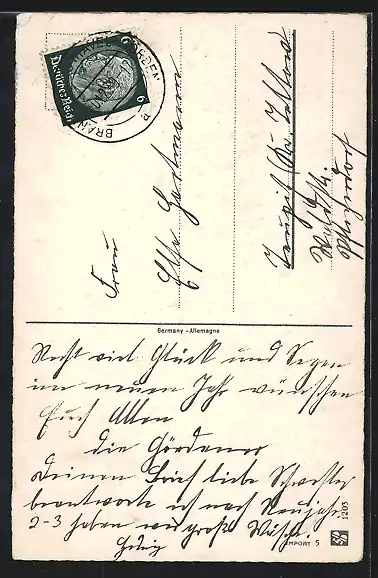 Deutsches Reich
6
BRAN
Frau
Else Hartmann
Germany - Allemagne
Recht viel Glück und Segen
im neuen Jahr wünschen
Euch Allen
die Gördener
Deinen Brief liebe Schwester
beantworte ich nach Neujahr
2-3 haben wir große Wäsche.
IMPORT 5
1203